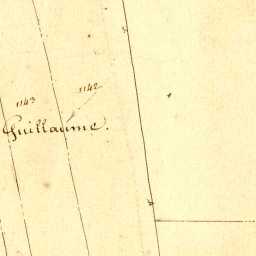 1142
1143
Guillaume.